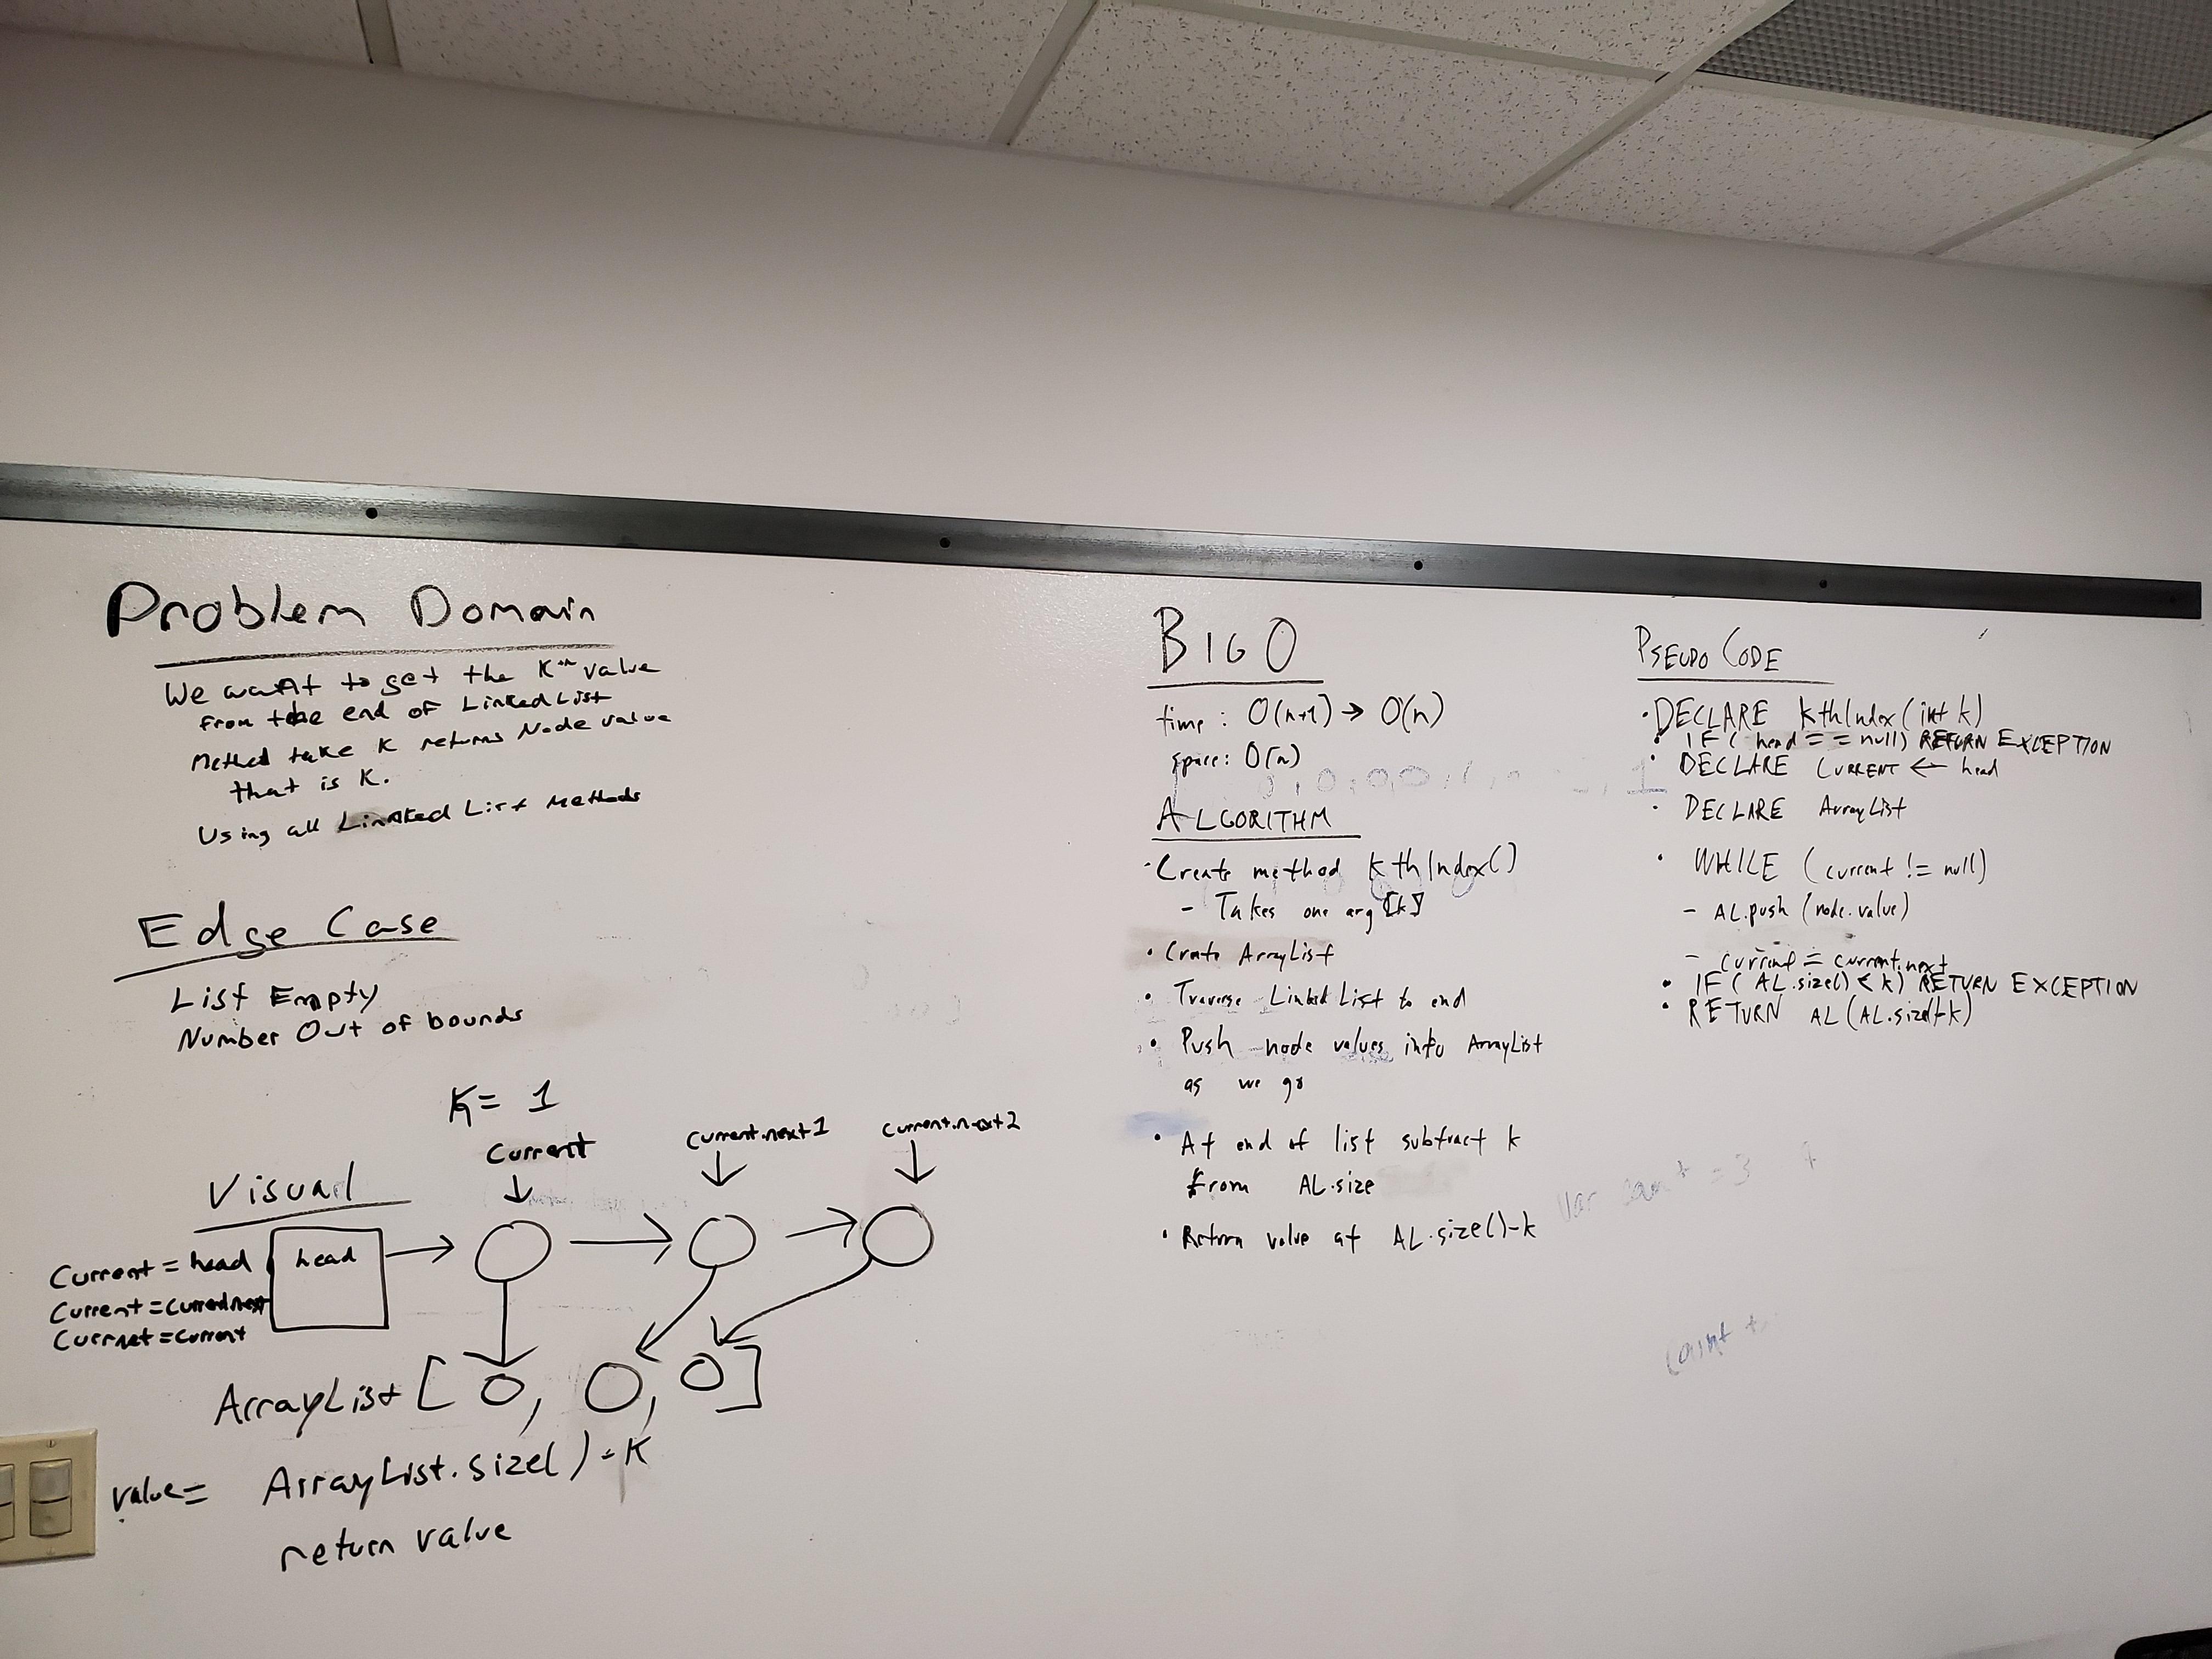 Problem Domain
We want to get the Kth value
from the end of Linked List
Method take K returns Node value
that is K.
Using all Linked List Methods
Edge Case
List Empty
Number Out of bounds
K = 1
Current
Current.next1
Current.next2
Visual
head
Current = head
Current = Current.next
Currnet = Current
ArrayList [ O, O, O ]
value = ArrayList.size() - K
return value
BIG O
time: O(n+1) → O(n)
space: O(n)
ALGORITHM
· Create method kthIndex()
- Takes one arg [k]
· Create ArrayList
· Traverse Linked List to end
· Push node values into ArrayList
as we go
· At end of list subtract k
from AL.size
· Return value at AL.size()-k
PSEUDO CODE
· DECLARE kthIndex(int k)
· IF (head == null) RETURN EXCEPTION
· DECLARE CURRENT ← head
· DECLARE ArrayList
· WHILE (current != null)
- AL.push (node.value)
- current = current.next
· IF (AL.size() < k) RETURN EXCEPTION
· RETURN AL(AL.size()-k)
Var count = 3
count +